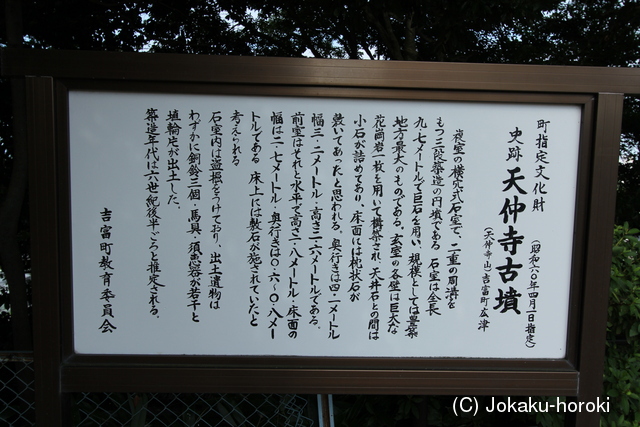 町指定文化財
(昭和六〇年四月一日指定)
史跡 天仲寺古墳
(天仲寺山)吉富町広津
複室の横穴式石室で、二重の周溝を
もつ三段築造の円墳である 石室は全長
九・七メートルで巨石を用い、規模としては豊築
地方最大のものである。玄室の各壁は巨大な
花崗岩一枚を用いて構築され、天井石との間は
小石が詰めてあり、床面には枕状石が
敷いてあったと思われる。奥行きは四・一メートル
幅三・二メートル・高さ二・六メートルである。
前室はそれと水平で高さ一・八メートル・床面の
幅は二・七メートル・奥行きは〇・六~〇・八メー
トルである 床上には敷石が施されていたと
考えられる
石室内は盗掘をうけており、出土遺物は
わずかに銅鈴三個・馬具・須恵器が若干と
埴輪片が出土した。
築造年代は六世紀後半ごろと推定される。
吉富町教育委員会
(C) Jokaku-horoki